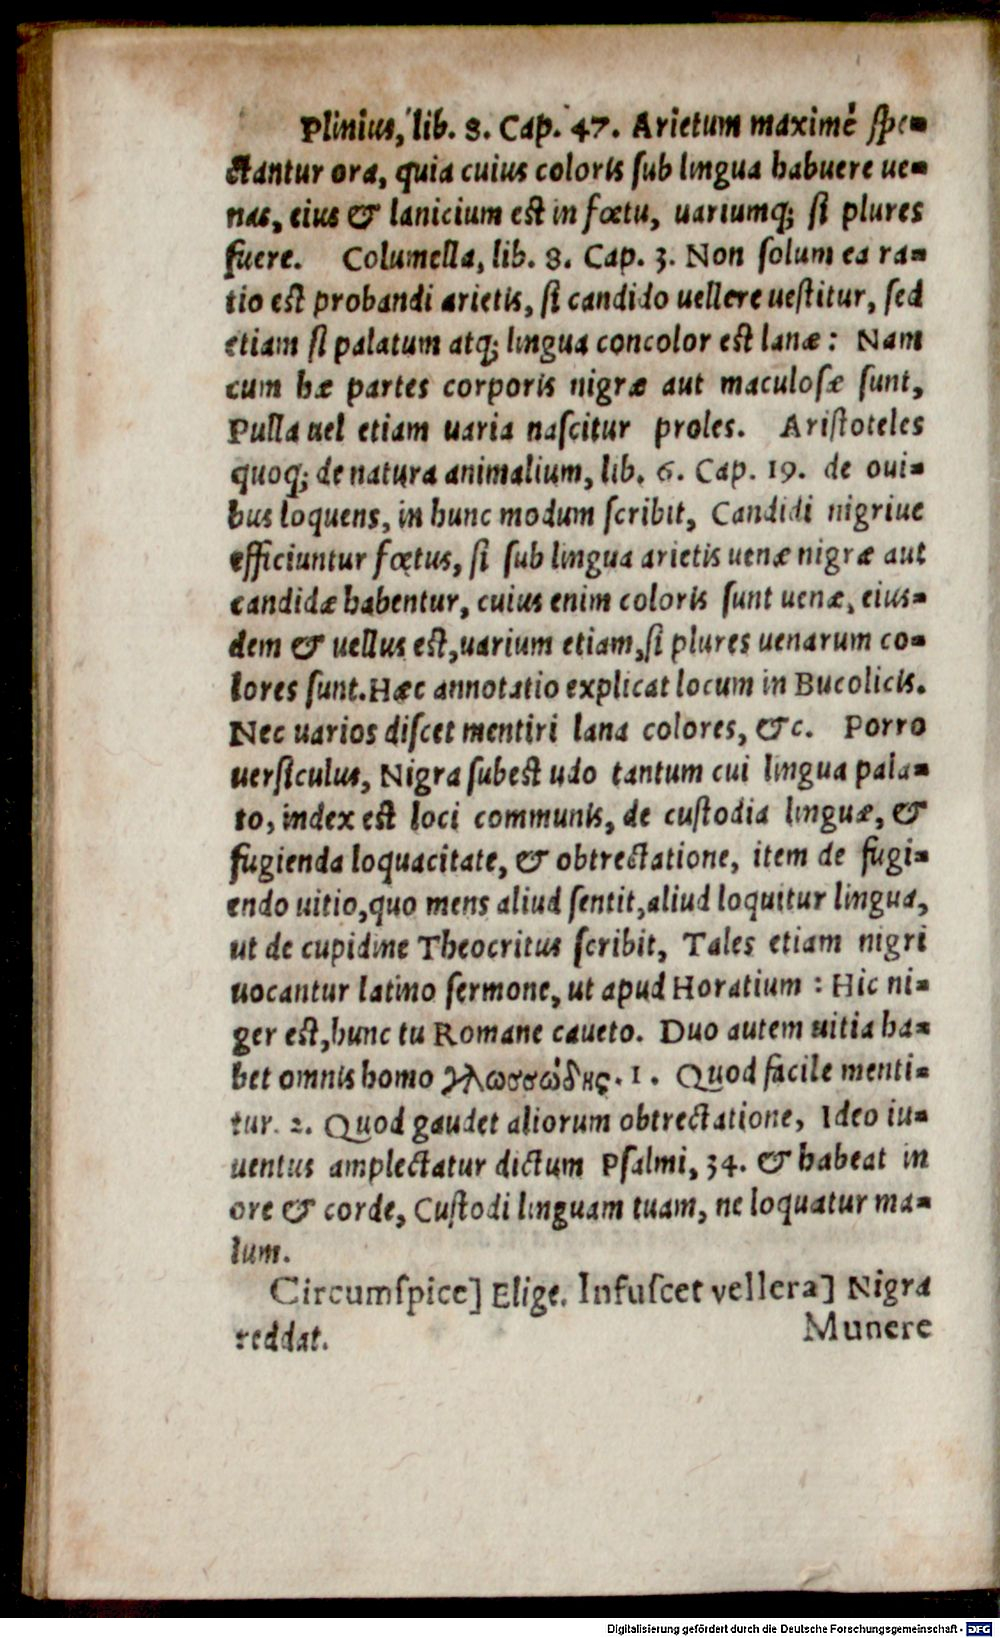 Plinius, lib. 8. Cap. 47. Arietum maximè spe-
ctantur ora, quia cuius coloris sub lingua habuere ue-
nas, eius & lanicium est in fœtu, uariumq; si plures
fuere. Columella, lib. 8. Cap. 3. Non solum ea ra-
tio est probandi arietis, si candido uellere uestitur, sed
etiam si palatum atq; lingua concolor est lanæ: Nam
cum hæ partes corporis nigræ aut maculosæ sunt,
Pulla uel etiam uaria nascitur proles. Aristoteles
quoq; de natura animalium, lib. 6. Cap. 19. de oui-
bus loquens, in hunc modum scribit, Candidi nigriue
efficiuntur fœtus, si sub lingua arietis uenæ nigræ aut
candidæ habentur, cuius enim coloris sunt uenæ, eius-
dem & uellus est, uarium etiam, si plures uenarum co-
lores sunt. Hæc annotatio explicat locum in Bucolicis.
Nec uarios discet mentiri lana colores, &c. Porro
uersiculus, Nigra subest udo tantum cui lingua pala-
to, index est loci communis, de custodia linguæ, &
fugienda loquacitate, & obtrectatione, item de fugi-
endo uitio, quo mens aliud sentit, aliud loquitur lingua,
ut de cupidine Theocritus scribit, Tales etiam nigri
uocantur latino sermone, ut apud Horatium: Hic ni-
ger est, hunc tu Romane caueto. Duo autem uitia ha-
bet omnis homo γλωσσώδης. 1. Quod facile menti-
tur. 2. Quod gaudet aliorum obtrectatione, Ideo iu-
uentus amplectatur dictum Psalmi, 34. & habeat in
ore & corde, Custodi linguam tuam, ne loquatur ma-
lum.
Circumspice] Elige. Infuscet vellera] Nigra
reddat.
Munere
Digitalisierung gefördert durch die Deutsche Forschungsgemeinschaft - DFG